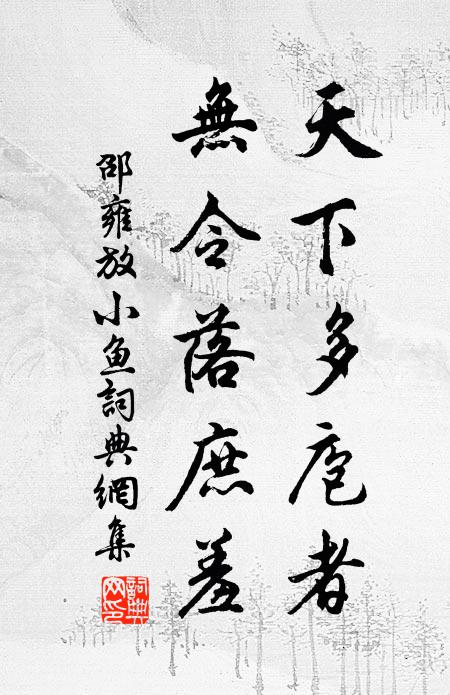 天下多庖者
無令落庶羞
邵雍放小魚詞典網集
詞典
网印